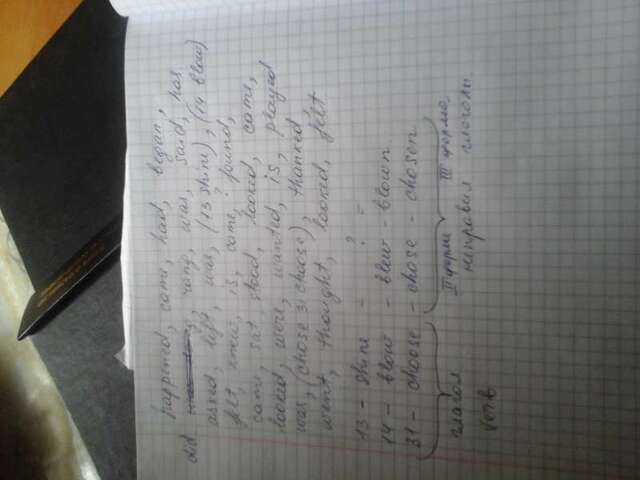 happened, came, had, began,
did rang, was, said, has
asked, left, was, (13 shine), (14 blow)
felt, knew, is, came, ? found,
came, sat, stood, looked, came,
looked, were, wanted, is, played
was, (chose 31 choose), thanked,
went, thought, looked, felt
13 - shine - ? =
14 - blow - blew - blown.
31 - choose - chose - chosen
глагол II форма III форма
неправил глаголы.
Verb